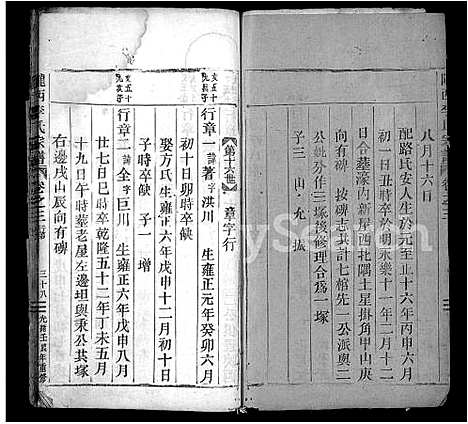 八月十六日
配路氏安人生於元至正十六年丙申六月
初一日丑時卒於明永樂十一年二月十二
日合墓濠內新屋西北隅土星掛角甲山庚
向有碑 按碑志其計七棺先一公派與二
公 分作三塚後修理合爲一塚
子三 山 允
第十六世 章字行
行章一 諱著 字淇川 生雍正元年癸卯六月
初十日卯時卒缺
娶方氏生雍正六年戊申十二月初十日
子時卒缺 子一 增
行章二 諱 字巨川 生雍正六年戊申八月
廿七日巳時卒乾隆五十二年丁未五月
十九日午時葬老屋左邊坦與秉公共塚
右邊戌山辰向有碑
隴西李氏宗譜 卷之三 三十八 光緒壬 年重修